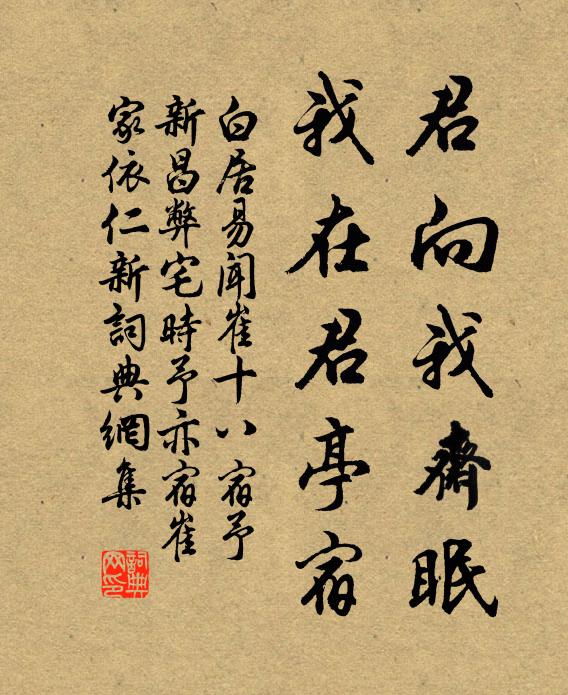 君向我齋眠
我在君亭宿
白居易聞崔十八宿予
新昌弊宅時予亦宿崔
家依仁新詞典網集
詞典網印